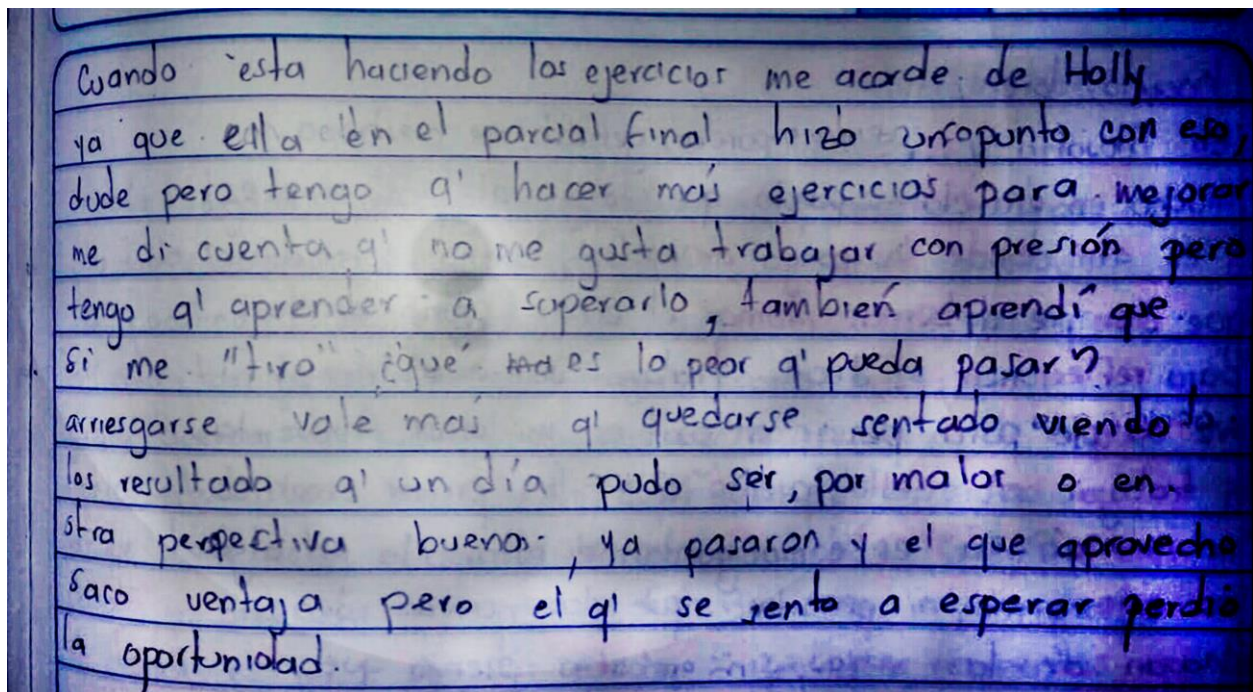 Cuando esta haciendo los ejercicios me acorde de Holly
ya que ella en el parcial final hizo un punto con eso,
dude pero tengo q' hacer más ejercicios para mejorar
me di cuenta q' no me gusta trabajar con presión pero
tengo q' aprender a superarlo, también aprendí que
si me "tiro" ¿qué es lo peor q' pueda pasar?
arriesgarse vale más q' quedarse sentado viendo
los resultado q' un día pudo ser, por malos o en
otra perspectiva buenos, ya pasaron y el que aprovecho
saco ventaja pero el q' se sento a esperar perdió
la oportunidad.